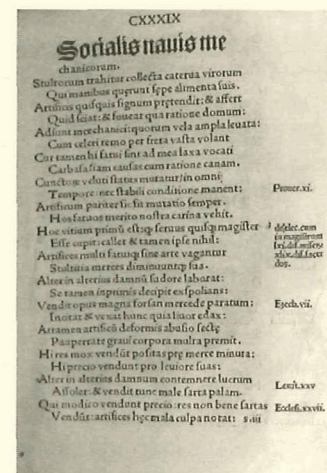 CXXXIX
Socialis nauis me
chanicorum.
Stultorum trahitur collecta caterua virorum
Qui manibus quęrunt sępe alimenta suis.
Artifices quisquis signum prętendit: & affert
Quid sciat: & foueat qua ratione domum:
Adsunt mechanici: quorum vela ampla leuata:
Cum celeri remo per freta vasta volant
Cur tamen hi fatui sint ad mea laxa vocati
Carbasa iam causas cum ratione canam.
Cunctoꝝ veluti status mutatur in omni
Tempore: nec stabili conditione manent:
Prouer.xi.
Artificum pariter sic fit mutatio semper.
Hos fatuos merito nostra carina vehit.
Hoc vitium primū estꝗ seruus quisꝗ magister
Esse cupit: callet & tamen ipse nihil:
Artifices multi fatuiꝗ sine arte vagantur
Stultitia merces diminuuntꝗ sua.
Alter in alterius damnū sudore laborat:
Se tamen inprimis decipit exspolians:
Vendit opus magna forsan mercede paratum:
Ezech.vii.
Inotat & vexat hunc quia liuor edax:
Attamen artificū deformis abusio sectę
Paupertate graui corpora multa premit.
Hi res mox vendūt positas pre merce minuta:
Hi precio vendunt pro leuiore suas:
Alter in alterius damnum contemnere lucrum
Leuit.xxv
Assolet: & vendit tunc male sarta palam.
Qui modico vendunt precio: res non bene sartas
Ecclesi.xxvii.
Vendūt: artifices hęc mala culpa notat: